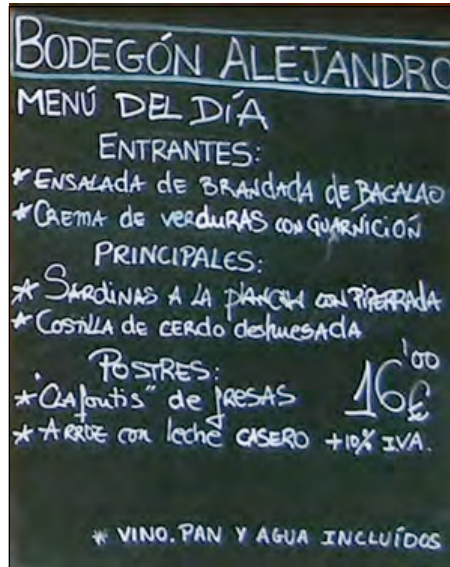 BODEGÓN ALEJANDRO
MENÚ DEL DÍA
ENTRANTES:
* ENSALADA de BRANDADA de BACALAO
* CREMA de verduras con GUARNICIÓN
PRINCIPALES:
* SARDINAS A LA PLANCHA con PIPERRADA
* COSTILLA de CERDO deshuesada
POSTRES:
* "Clafoutis" de fresas
* ARROZ con leche CASERO
16'00 €
+10% I.V.A.
* VINO. PAN Y AGUA INCLUÍDOS